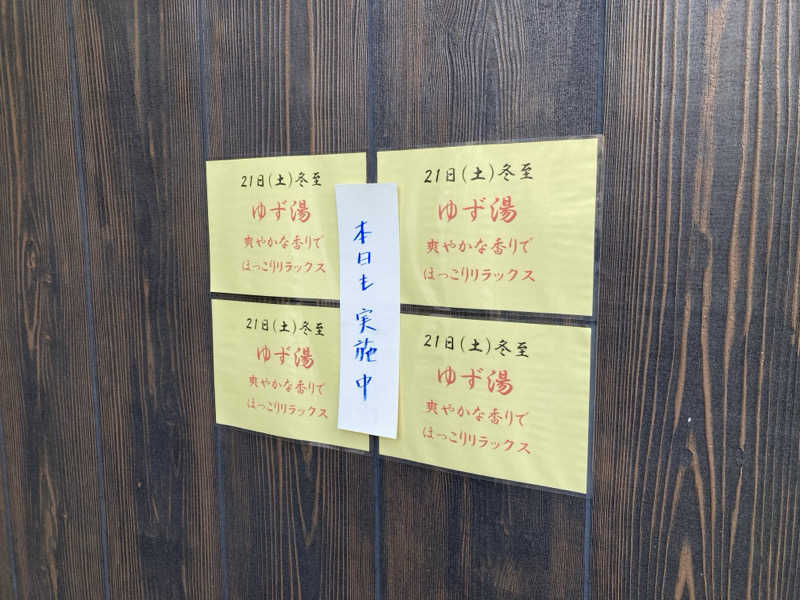 21日(土)冬至
ゆず湯
爽やかな香りで
ほっこりリラックス
21日(土)冬至
ゆず湯
爽やかな香りで
ほっこりリラックス
本日も実施中
21日(土)冬至
ゆず湯
爽やかな香りで
ほっこりリラックス
21日(土)冬至
ゆず湯
爽やかな香りで
ほっこりリラックス